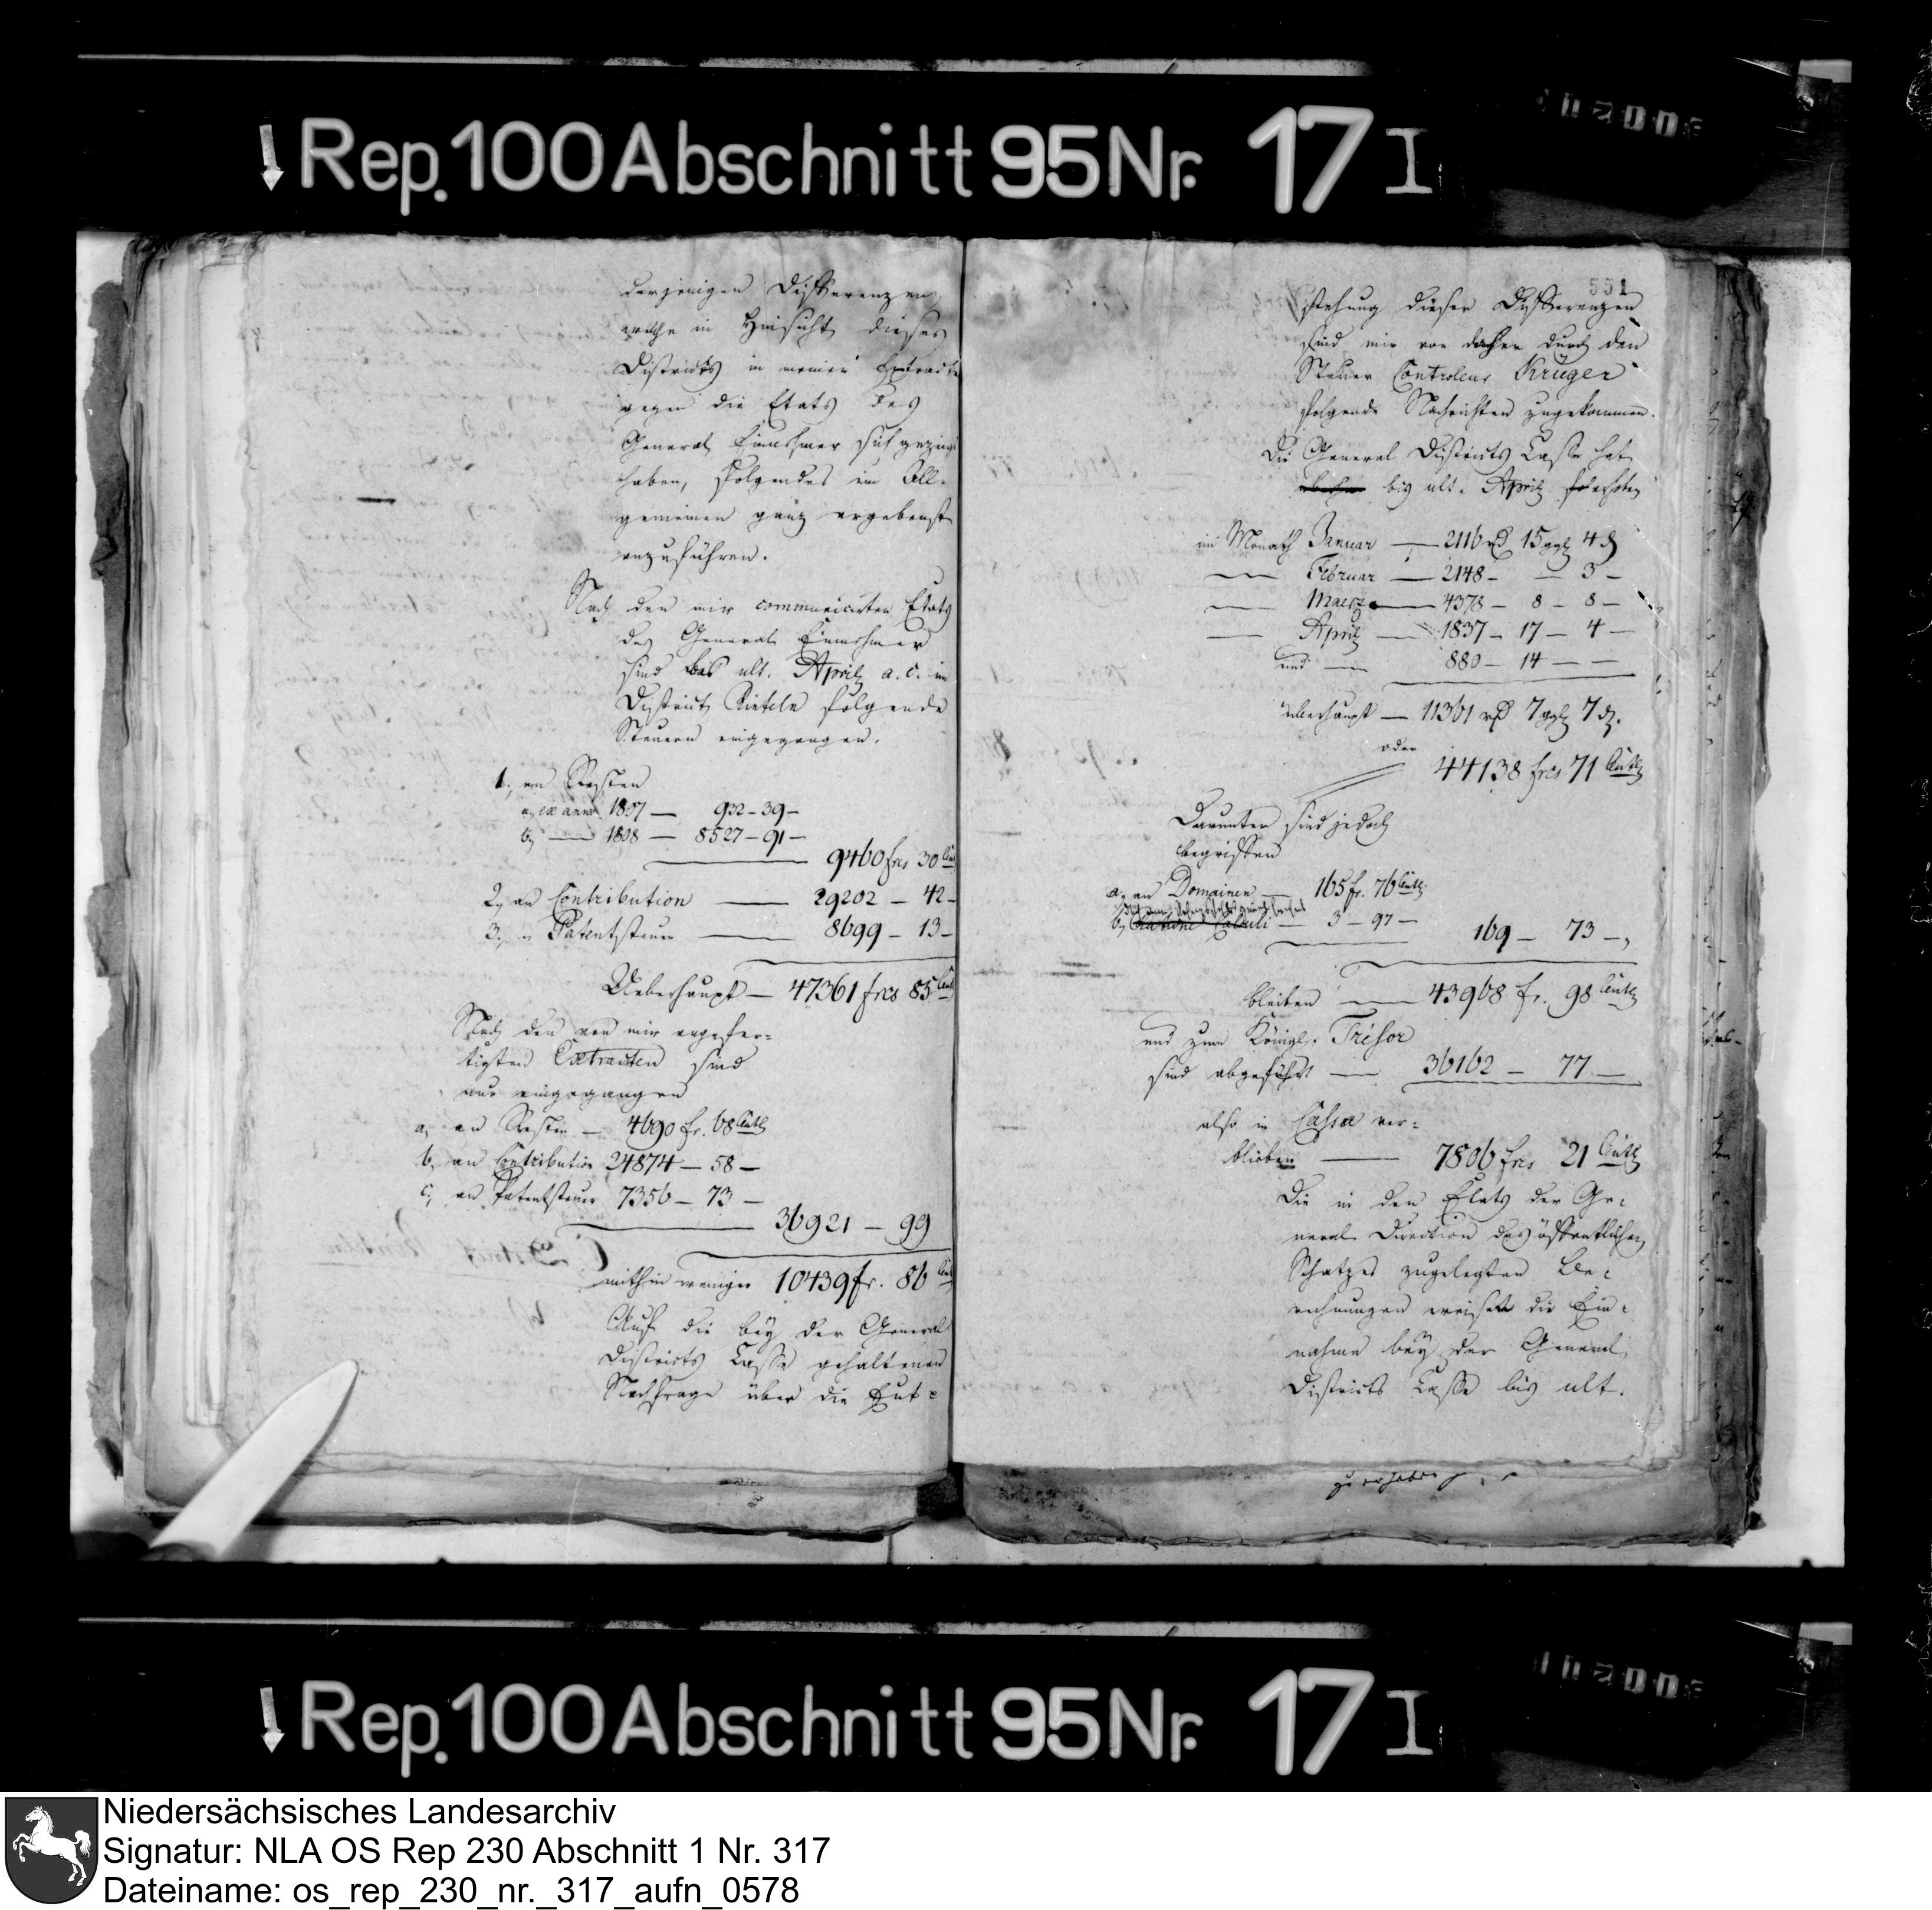 Rep. 100 Abschnitt 95 Nr. 17 I
derjenigen Differenzen,
welche in Hinsicht dieses
Districts in meinen Extracten
gegen die Etats des
General Einnehmer sich gezeigt
haben, folgendes im All-
gemeinen ganz ergebenst
anzuführen.
Nach den mir communicirten Etats
des General Einnehmer
sind bis ult. April a. c. im
District Rinteln folgende
Steuern eingegangen.
1., an Resten
a, ex anno 1807 — 932 - 39 -
b, — 1808 — 8527 - 91 -
9460 frcs 30 Cent
2., an Contribution — 29202 - 42 -
3., " Patentsteuer — 8699 - 13 -
Ueberhaupt — 47361 frcs 85 Cent
Nach den von mir angefer-
tigten Extracten sind
nur eingegangen
a, an Resten — 4690 fr. 68 Centl
b, an Contribution 24874 — 58 —
c, an Patentsteuer 7356 — 73 —
36921 — 99
mithin weniger 10439 fr. 86 Cent
Auf die bey der General
Districts Casse gehaltenen
Nachfrage über die Ent-
551
stehung dieser Differenzen
sind mir von daher durch den
Steuer Controleur Krüger
folgende Nachrichten zugekommen.
Die General Districts Casse hat
bis ult. April erhoben
im Monath Januar — 2116 rß 15 ggl 4 d
— Februar — 2148 - — 3 -
— Maerz — 4378 - 8 - 8 -
— April — 1837 - 17 - 4 -
und — 880 - 14 - —
überhaupt — 11361 rß 7 ggl 7 d.
oder
44138 frcs 71 Centl
Darunter sind jedoch
begriffen
a, an Domainen — 165 fr. 76 Centl.
b, — 3 - 97 -
169 — 73 —,
bleiben — 43968 fr. 98 Centl
und zum Königl. Trésor
sind abgeführt — 36162 — 77 —
also in Cassa ver-
blieben — 7806 frcs 21 Centl
Die in den Etats der Ge-
neral Direction des öffentlichen
Schatzes zugelegten Be-
rechnungen weiset die Ein-
nahme bey der General
Districts Casse bis ult.
Rep. 100 Abschnitt 95 Nr. 17 I
Niedersächsisches Landesarchiv
Signatur: NLA OS Rep 230 Abschnitt 1 Nr. 317
Dateiname: os_rep_230_nr._317_aufn_0578